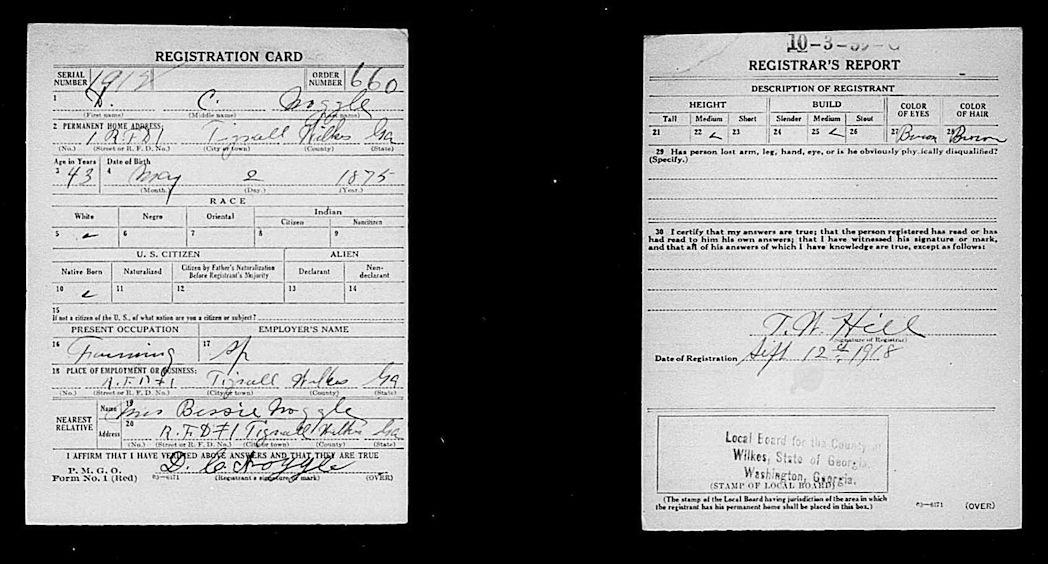 REGISTRATION CARD
SERIAL NUMBER 1912 ORDER NUMBER 660
1 D. C. Noggle
(First name) (Middle name) (Last name)
2 PERMANENT HOME ADDRESS:
R.F.D 1 Tignall Wilkes Ga
(No.) (Street or R. F. D. No.) (City or town) (County) (State)
Age in Years Date of Birth
3 43 4 May 2 1875
(Month.) (Day.) (Year.)
RACE
White Negro Oriental Indian
Citizen Noncitizen
5 6 7 8 9
U. S. CITIZEN ALIEN
Native Born Naturalized Citizen by Father's Naturalization Before Registrant's Majority Declarant Non-declarant
10 11 12 13 14
15
If not a citizen of the U. S., of what nation are you a citizen or subject?
PRESENT OCCUPATION EMPLOYER'S NAME
16 Farming 17
18 PLACE OF EMPLOYMENT OR BUSINESS:
R.F.D #1 Tignall Wilkes Ga
(No.) (Street or R. F. D. No.) (City or town) (County) (State)
NEAREST RELATIVE Name 19 Mrs Bessie Noggle
Address 20 R.F.D #1 Tignall Wilkes Ga
(No.) (Street or R. F. D. No.) (City or town) (County) (State)
I AFFIRM THAT I HAVE VERIFIED ABOVE ANSWERS AND THAT THEY ARE TRUE
P. M. G. O.
Form No. 1 (Red) 03—6171 D. C. Noggle (Registrant's signature or mark) (OVER)
10-3-39-C
REGISTRAR'S REPORT
DESCRIPTION OF REGISTRANT
HEIGHT BUILD COLOR OF EYES COLOR OF HAIR
Tall Medium Short Slender Medium Stout
21 22 23 24 25 26 27 Brown 28 Brown
29 Has person lost arm, leg, hand, eye, or is he obviously physically disqualified?
(Specify.)
30 I certify that my answers are true; that the person registered has read or has
had read to him his own answers; that I have witnessed his signature or mark,
and that all of his answers of which I have knowledge are true, except as follows:
T. W. Hill
(Signature of Registrar)
Date of Registration Sept 12 1918
Local Board for the County of
Wilkes, State of Georgia,
Washington, Georgia.
(STAMP OF LOCAL BOARD)
(The stamp of the Local Board having jurisdiction of the area in which
the registrant has his permanent home shall be placed in this box.)
03—6171 (OVER)